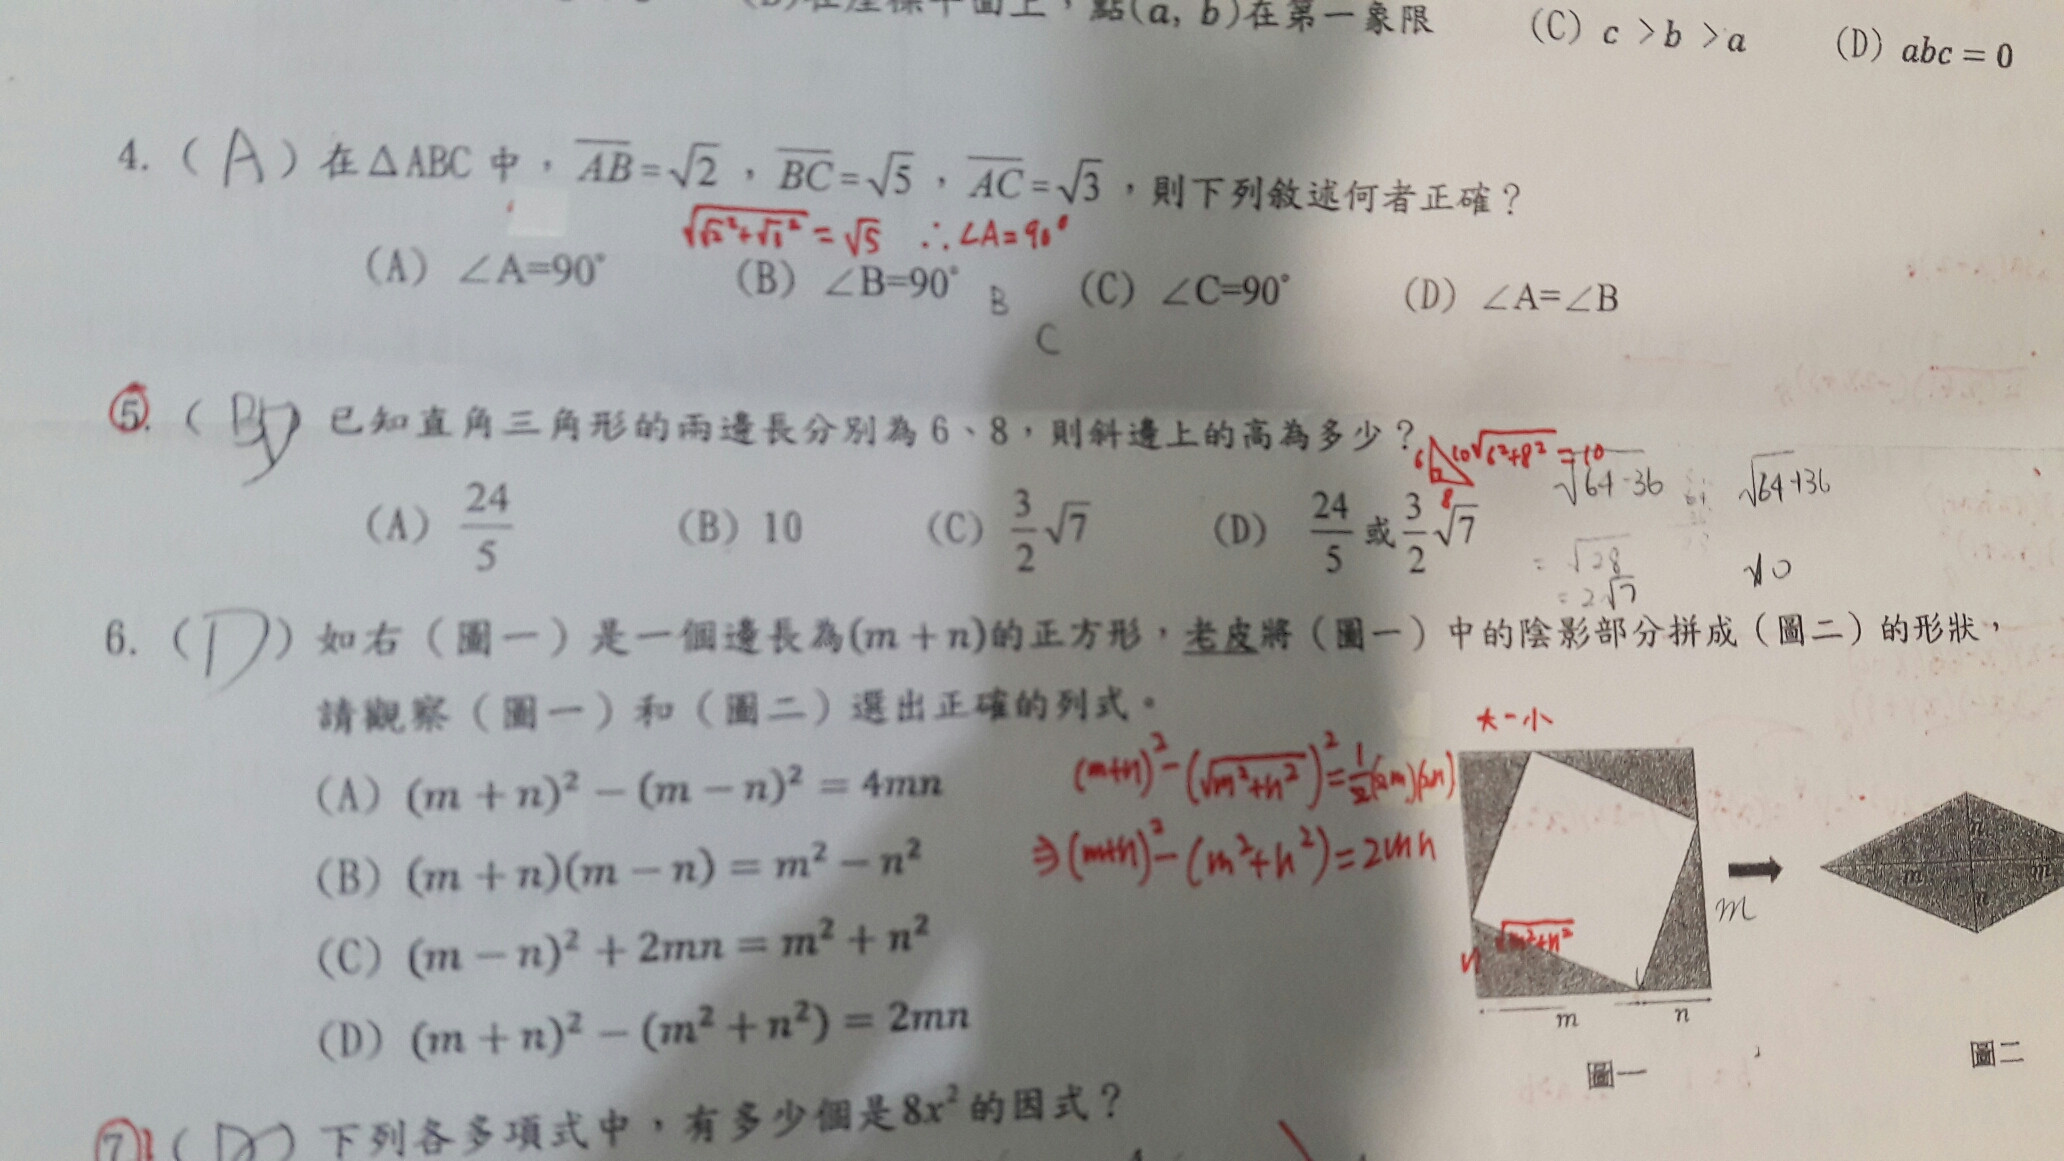 點(a, b)在第一象限 (C) c >b >a (D) abc = 0
4. ( A ) 在 △ABC 中，AB=√2，BC=√5，AC=√3，則下列敘述何者正確？
= √5 ∴∠A=90°
(A) ∠A=90° (B) ∠B=90° (C) ∠C=90° (D) ∠A=∠B
B
C
5. ( ) 已知直角三角形的兩邊長分別為 6、8，則斜邊上的高為多少？
6 10 8 √6²+8² = 10
√64-36 √64+36
(A) 24/5 (B) 10 (C) 3/2 √7 (D) 24/5 或 3/2 √7
= √28 10
= 2√7
6. ( D ) 如右（圖一）是一個邊長為(m + n)的正方形，老皮將（圖一）中的陰影部分拼成（圖二）的形狀，
請觀察（圖一）和（圖二）選出正確的列式。
大-小
(A) (m + n)² − (m − n)² = 4mn
(m+n)² - (√m²+n²)² = 1/2(2m)(2n)
(B) (m + n)(m − n) = m² − n²
⇒ (m+n)² - (m²+n²) = 2mn
(C) (m − n)² + 2mn = m² + n²
(D) (m + n)² − (m² + n²) = 2mn
n
m m
n
m
n √m²+n²
m n
圖一 圖二
7. ( ) 下列各多項式中，有多少個是 8x² 的因式？